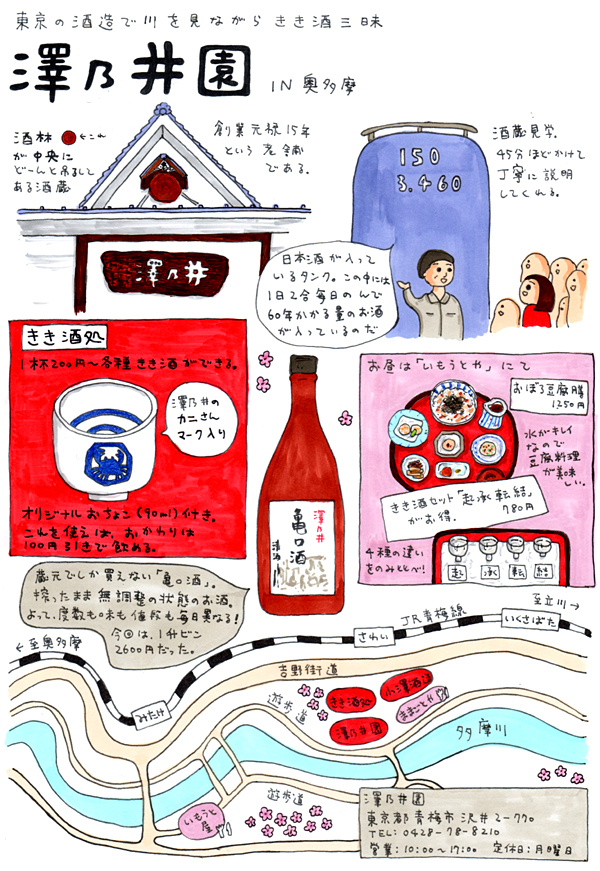 東京の酒造で川を見ながら きき酒三昧
澤乃井園
IN奥多摩
酒林 ←これ
が中央に
どーんと吊るして
ある酒蔵
創業元禄15年
という老舗
である。
澤乃井
150
3.460
酒蔵見学。
45分ほどかけて
丁寧に説明
してくれる。
日本酒が入って
いるタンク。この中には
1日2合毎日のんで
60年かかる量のお酒
が入っているのだ
きき酒処
1杯200円〜各種きき酒ができる。
澤乃井の
カニさん
マーク入り
オリジナルおちょこ(90ml)付き。
これを使えば、おかわりは
100円引きで飲める。
澤乃井
亀口酒
清酒
お昼は「いもうとや」にて
おぼろ豆腐膳
1250円
水がキレイ
なので
豆腐料理
が美味
しい。
きき酒セット「起承転結」
がお得。 780円
4種の違い
をのみととべ!
起 承 転 結
蔵元でしか買えない「亀口酒」。
搾ったまま無調整の状態のお酒。
よって、度数も味も値段も毎日異なる!
今回は、1升ビン
2600円だった。
←至奥多摩
みたけ
さわい
JR青梅線
至立川→
いくさばた
吉野街道
遊歩道
きき酒処
小澤酒造
ままごとや
澤乃井園
多摩川
いもうと
屋
遊歩道
澤乃井園
東京都青梅市沢井2-770
TEL: 0428-78-8210
営業:10:00〜17:00 定休日:月曜日